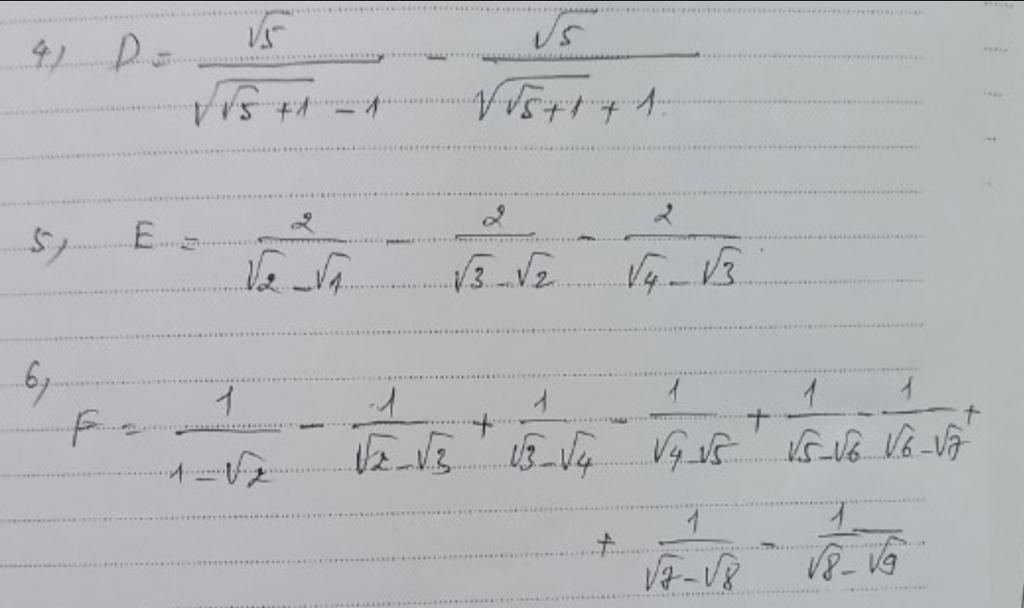 4) D = √5/(√(√5+1) - 1) - √5/(√(√5+1) + 1)
5) E = 2/(√2 - √1) - 2/(√3 - √2) - 2/(√4 - √3)
6)
F = 1/(1 - √2) - 1/(√2 - √3) + 1/(√3 - √4) - 1/(√4 - √5) + 1/(√5 - √6) - 1/(√6 - √7) +
+ 1/(√7 - √8) - 1/(√8 - √9)